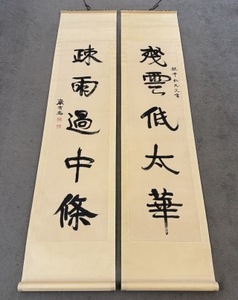 殘雲低太華
疎雨過中條